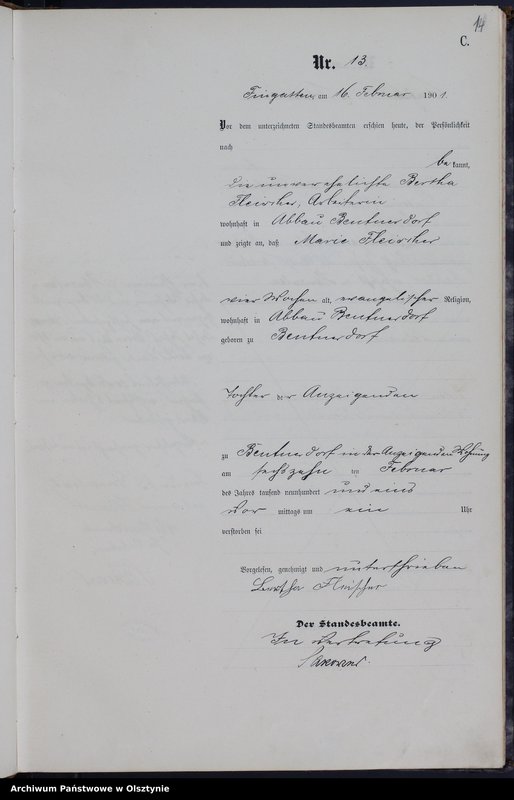 14
C.
Nr. 13.
am 16. Februar 1901.
Vor dem unterzeichneten Standesbeamten erschien heute, der Persönlichkeit
nach
bekannt,
die unverehelichte Bertha
Fleischer, Arbeiterin
wohnhaft in Abbau Bentnerdorf
und zeigte an, daß Marie Fleischer
vier Wochen alt, evangelischer Religion,
wohnhaft in Abbau Bentnerdorf
geboren zu Bentnerdorf
Tochter der Anzeigenden
zu Bentnerdorf in der Anzeigenden Wohnung
am sechszehn ten Februar
des Jahres tausend neunhundert und eins
Vor mittags um ein Uhr
verstorben sei
Vorgelesen, genehmigt und unterschrieben
Bertha Fleischer
Der Standesbeamte.
In Vertretung
Archiwum Państwowe w Olsztynie